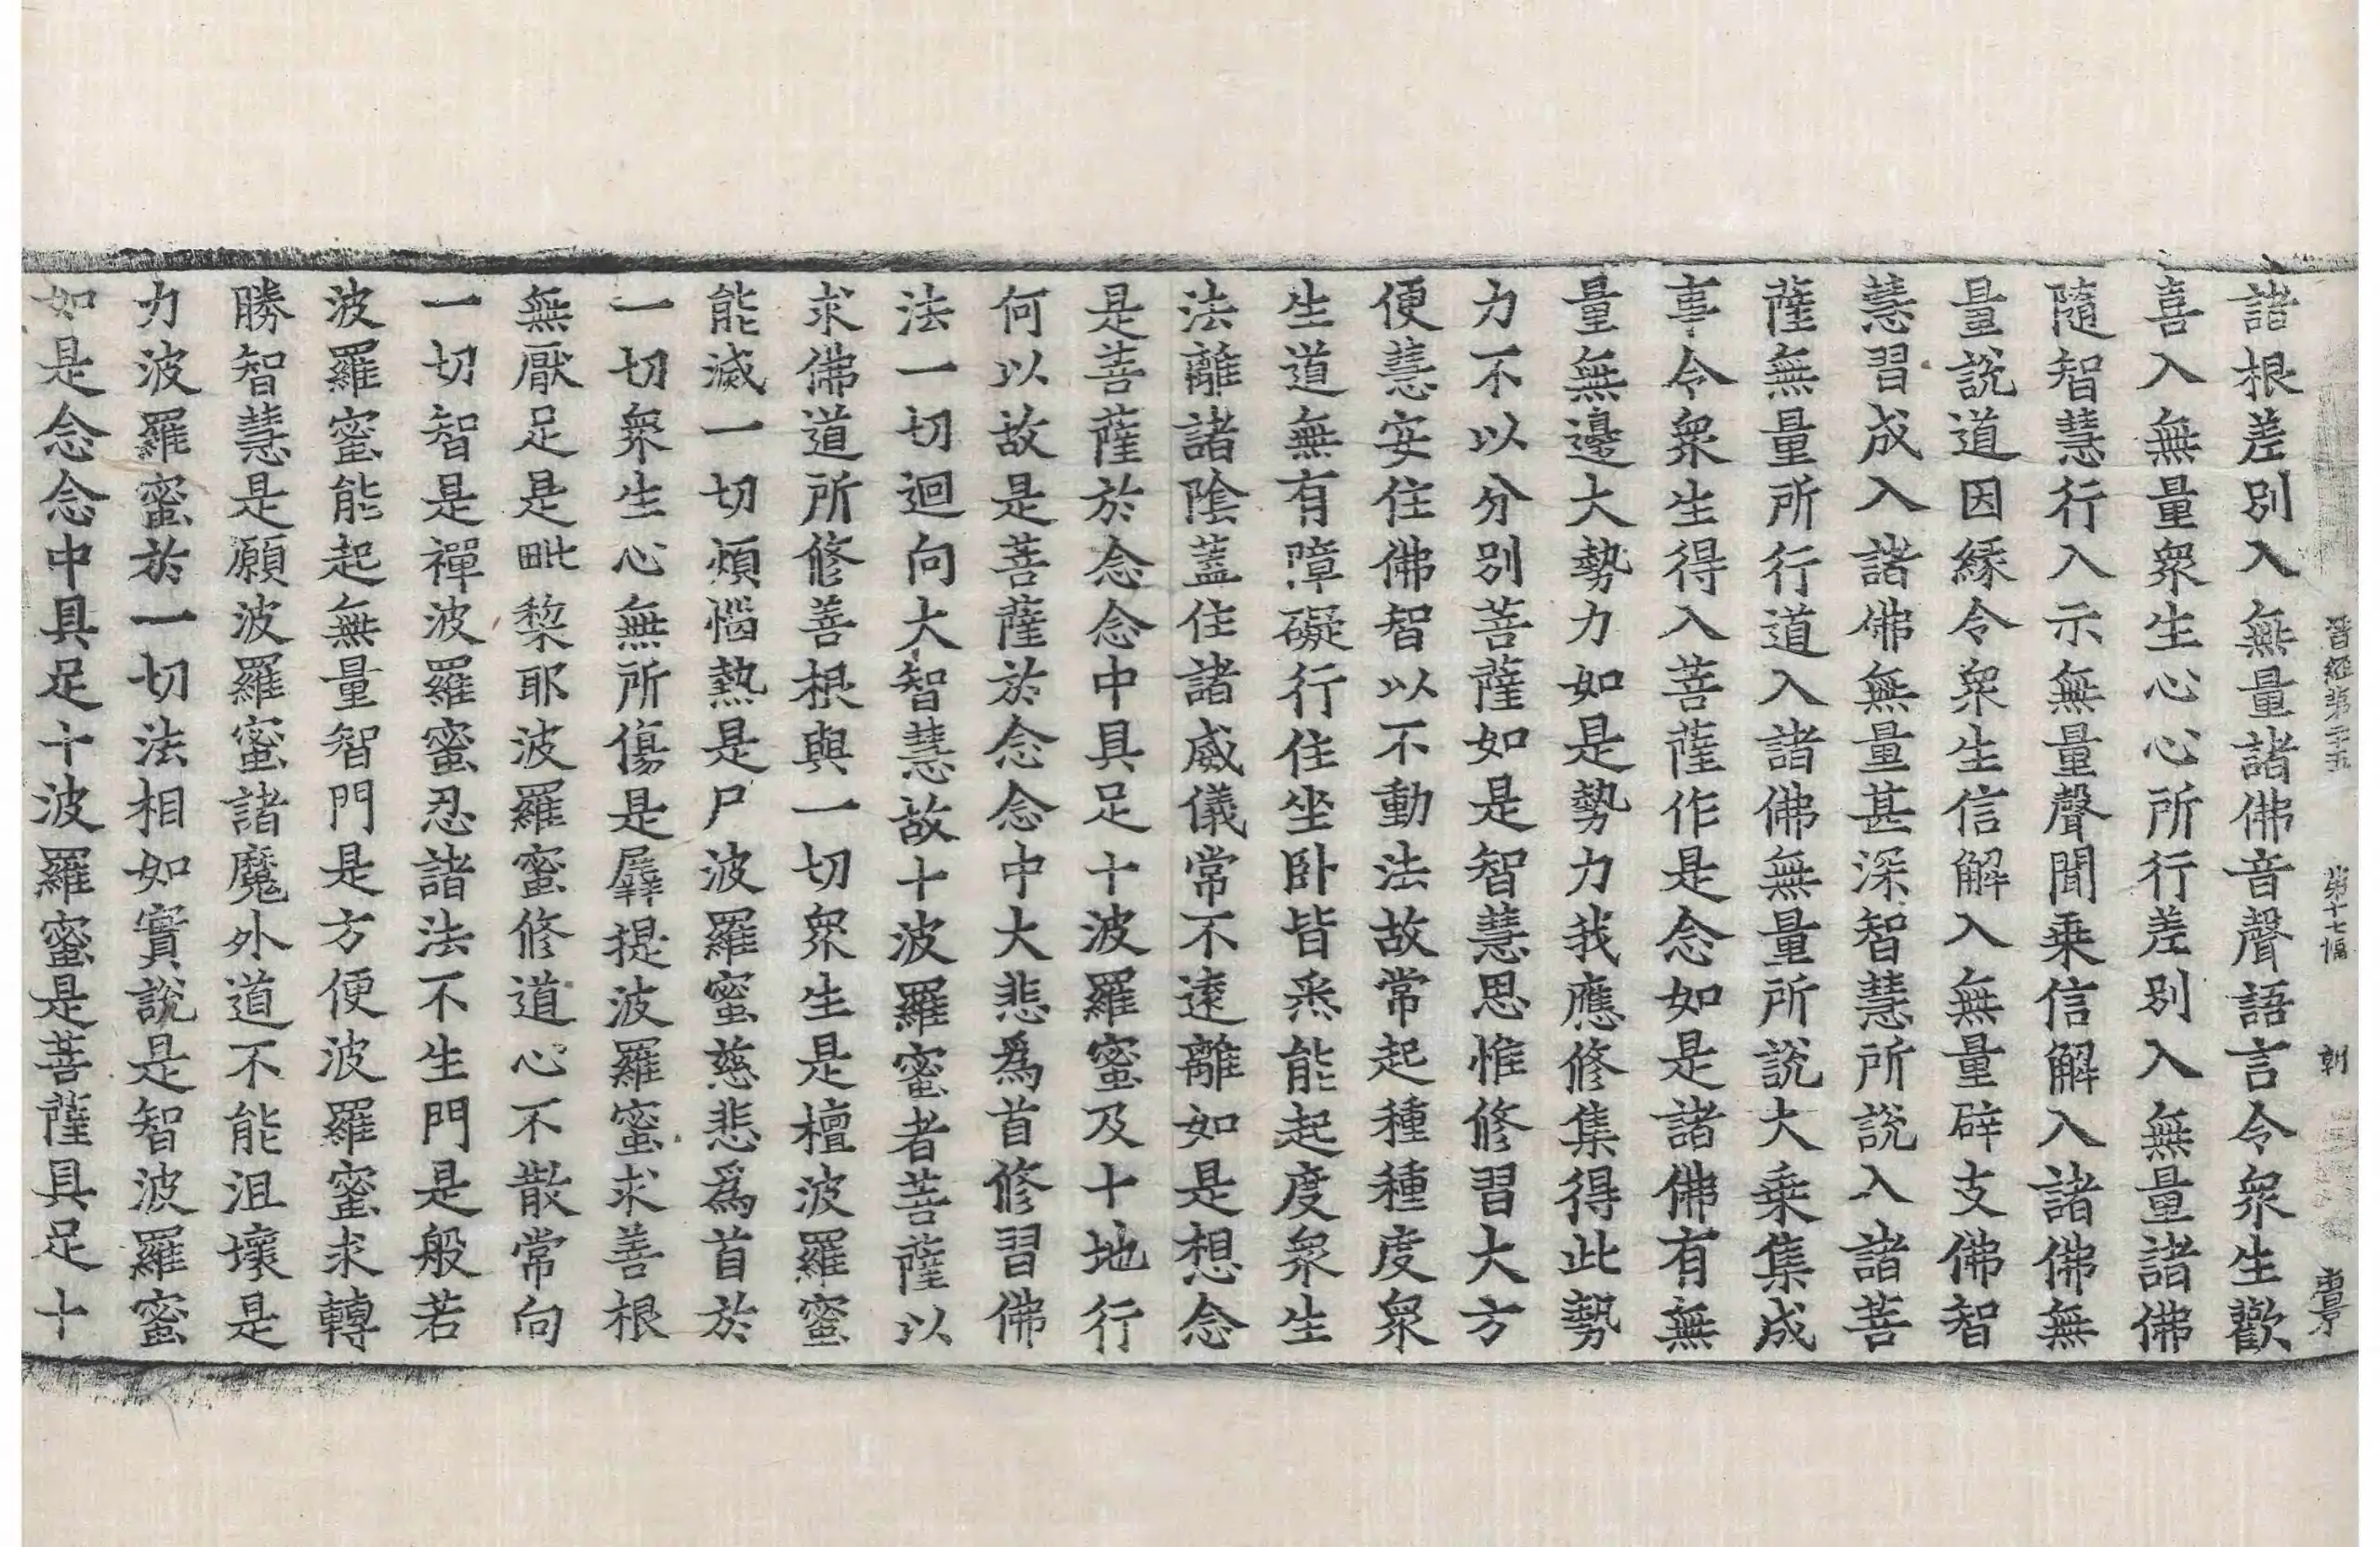 晋經第二十五 第十七幅 朝
諸根差別入無量諸佛音聲語言令衆生歡
喜入無量衆生心心所行差別入無量諸佛
隨智慧行入示無量聲聞乗信解入諸佛無
量說道因縁令衆生信解入無量辟支佛智
慧習成入諸佛無量甚深智慧所說入諸菩
薩無量所行道入諸佛無量所說大乗集成
事令衆生得入菩薩作是念如是諸佛有無
量無邊大勢力如是勢力我應修集得此勢
力不以分別菩薩如是智慧思惟修習大方
便慧安住佛智以不動法故常起種種度衆
生道無有障礙行住坐卧皆悉能起度衆生
法離諸陰蓋住諸威儀常不遠離如是想念
是菩薩於念念中具足十波羅蜜及十地行
何以故是菩薩於念念中大悲爲首修習佛
法一切迴向大智慧故十波羅蜜者菩薩以
求佛道所修善根與一切衆生是檀波羅蜜
能滅一切煩惱熱是尸波羅蜜慈悲爲首於
一切衆生心無所傷是羼提波羅蜜求善根
無厭足是毗梨耶波羅蜜修道心不散常向
一切智是禪波羅蜜忍諸法不生門是般若
波羅蜜能起無量智門是方便波羅蜜求轉
勝智慧是願波羅蜜諸魔外道不能沮壞是
力波羅蜜於一切法相如實說是智波羅蜜
如是念念中具足十波羅蜜是菩薩具足十